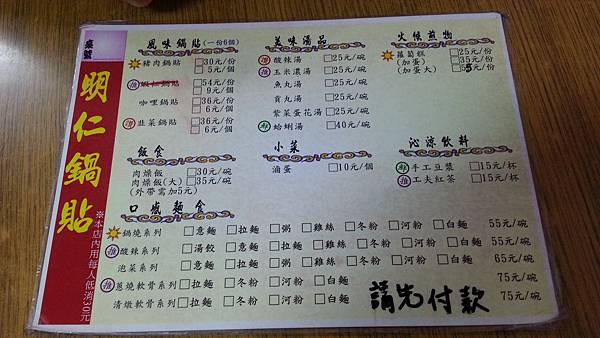 桌號
明仁鍋貼
※本店內用每人低消30元
風味鍋貼(一份6個)
豬肉鍋貼 □30元/份
□5元/個
推 蝦仁鍋貼 □54元/份
□9元/個
咖哩鍋貼 □36元/份
□6元/個
讚 韭菜鍋貼 □36元/份
□6元/個
美味湯品
讚 酸辣湯 □25元/碗
推 玉米濃湯 □25元/碗
魚丸湯 □25元/碗
貢丸湯 □25元/碗
紫菜蛋花湯 □25元/碗
鮮 蛤蜊湯 □40元/碗
火候煎物
蘿蔔糕 □25元/份
(加蛋) □35元/份
(加蛋大) □55元/份
飯食
肉燥飯 □30元/碗
肉燥飯(大) □35元/碗
(外帶需加5元)
小菜
滷蛋 □10元/個
沁涼飲料
手工豆漿 □15元/杯
推 工夫紅茶 □15元/杯
口感麵食
鍋燒系列 □意麵 □拉麵 □粥 □雞絲 □冬粉 □河粉 □白麵 55元/碗
推 酸辣系列 □湯餃 □意麵 □拉麵 □雞絲 □冬粉 □河粉 □白麵 55元/碗
泡菜系列 □意麵 □拉麵 □粥 □雞絲 □冬粉 □河粉 □白麵 65元/碗
推 蔥燒軟骨系列 □拉麵 □冬粉 □河粉 □白麵 75元/碗
清燉軟骨系列 □拉麵 □冬粉 □河粉 □白麵 75元/碗
請先付款